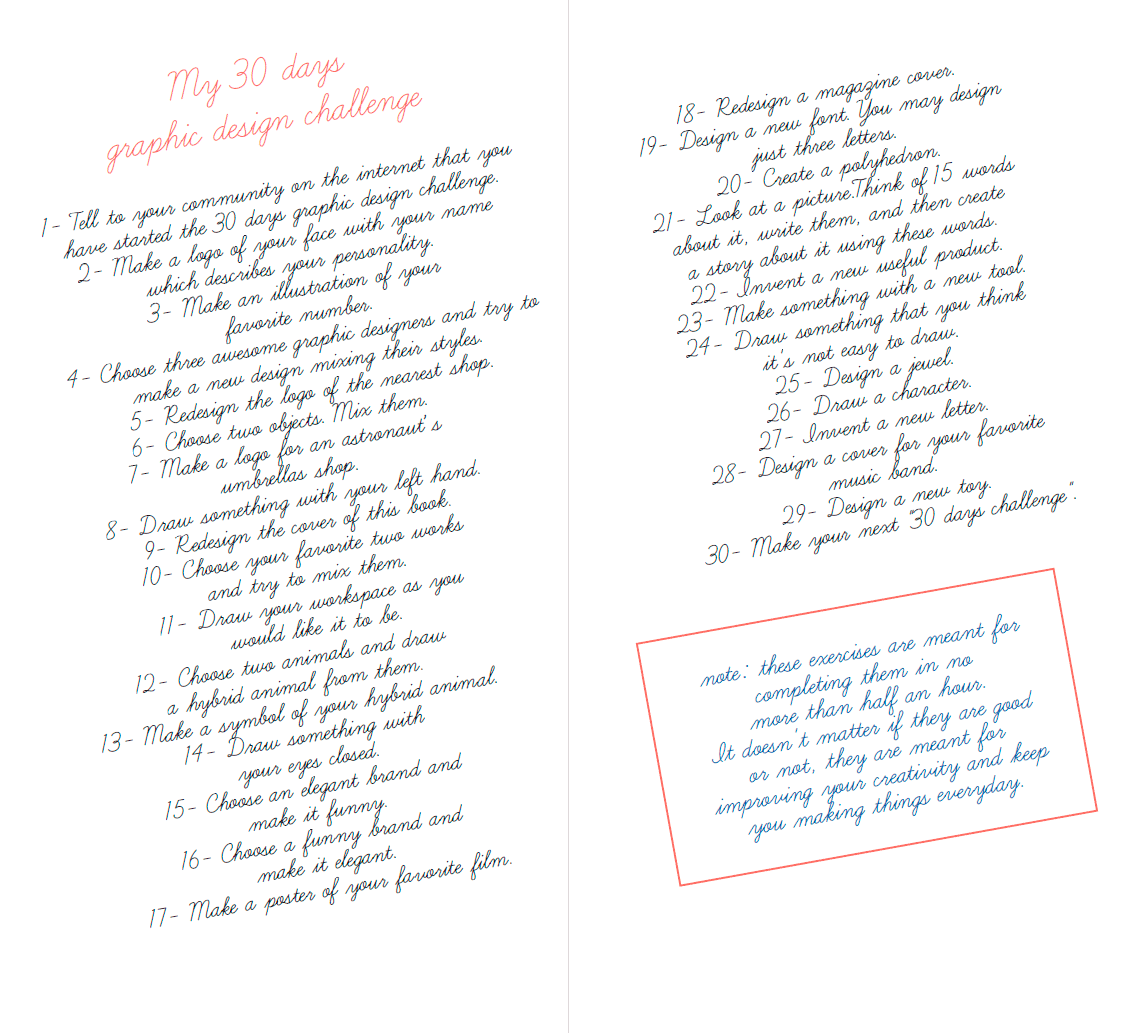 My 30 days
graphic design challenge
1- Tell to your community on the internet that you
have started the 30 days graphic design challenge.
2- Make a logo of your face with your name
which describes your personality.
3- Make an illustration of your
favorite number.
4- Choose three awesome graphic designers and try to
make a new design mixing their styles.
5- Redesign the logo of the nearest shop.
6- Choose two objects. Mix them.
7- Make a logo for an astronaut's
umbrellas shop.
8- Draw something with your left hand.
9- Redesign the cover of this book.
10- Choose your favorite two works
and try to mix them.
11- Draw your workspace as you
would like it to be.
12- Choose two animals and draw
a hybrid animal from them.
13- Make a symbol of your hybrid animal.
14- Draw something with
your eyes closed.
15- Choose an elegant brand and
make it funny.
16- Choose a funny brand and
make it elegant.
17- Make a poster of your favorite film.
18- Redesign a magazine cover.
19- Design a new font. You may design
just three letters.
20- Create a polyhedron.
21- Look at a picture.Think of 15 words
about it, write them, and then create
a story about it using these words.
22- Invent a new useful product.
23- Make something with a new tool.
24- Draw something that you think
it's not easy to draw.
25- Design a jewel.
26- Draw a character.
27- Invent a new letter.
28- Design a cover for your favorite
music band.
29- Design a new toy.
30- Make your next "30 days challenge".
note: these exercises are meant for
completing them in no
more than half an hour.
It doesn't matter if they are good
or not, they are meant for
improving your creativity and keep
you making things everyday.